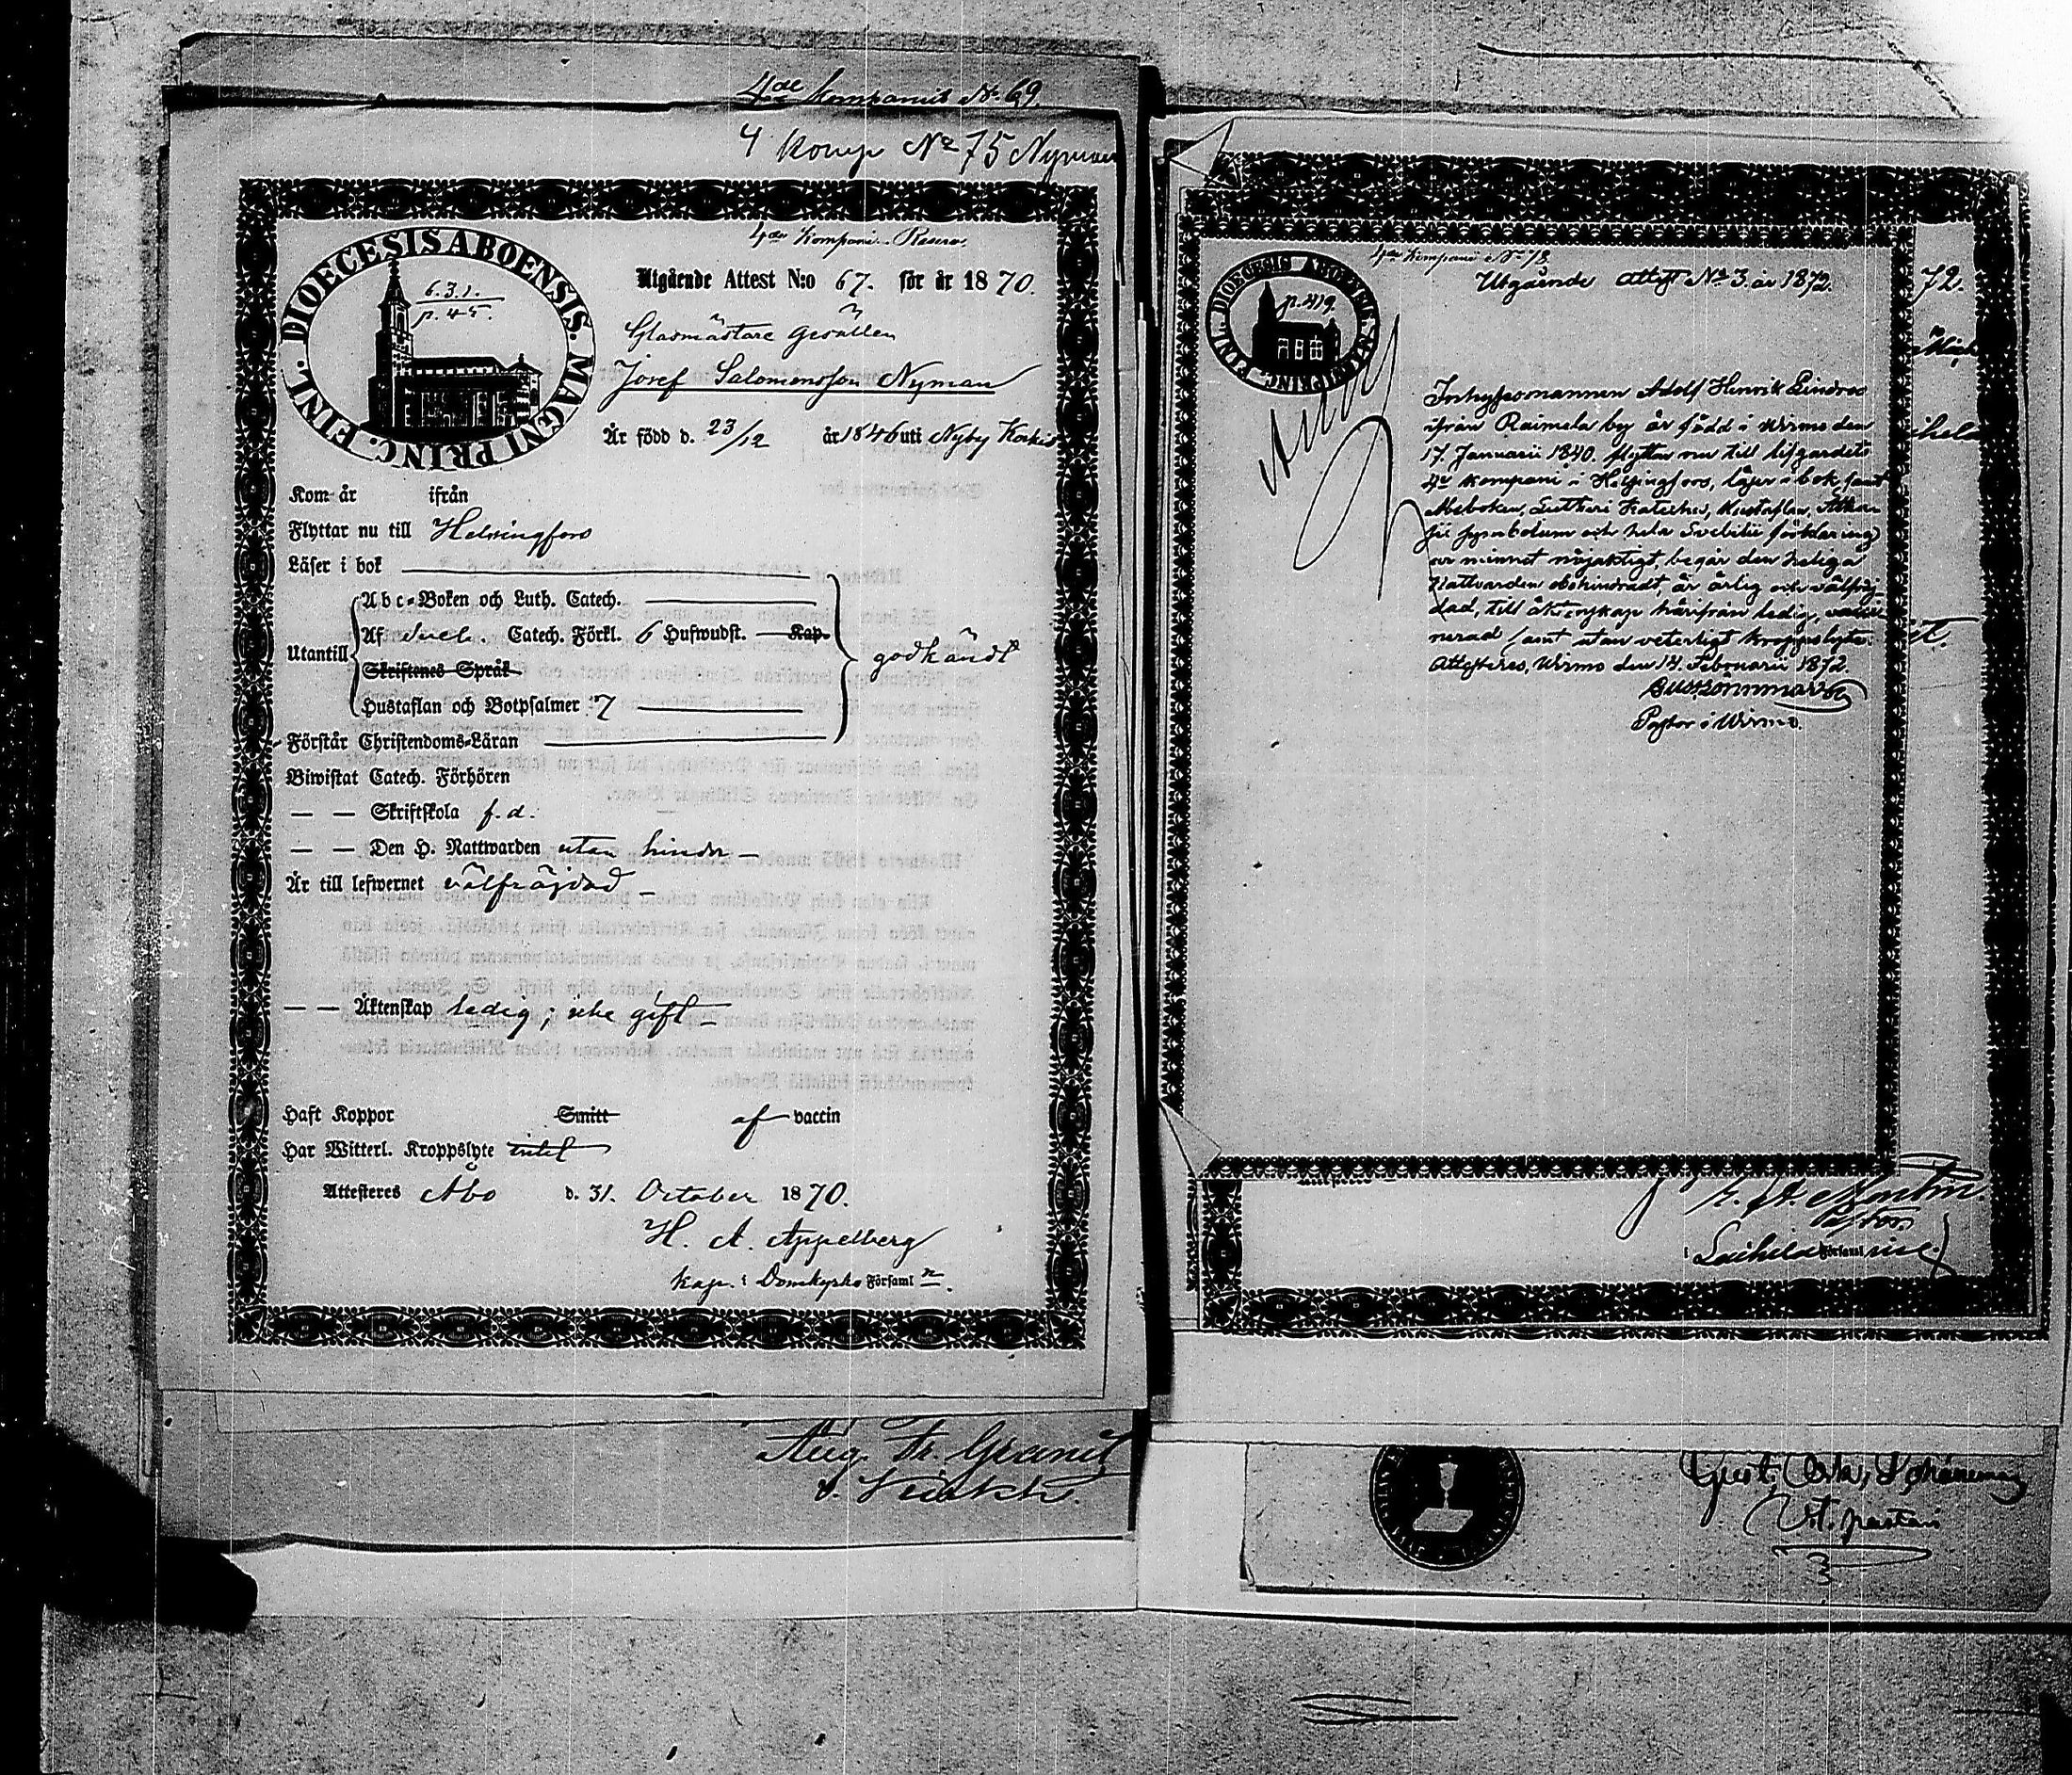 4de Kompanie No 69.
4 Komp No 75 Nyman
4de Kompani Reserv.
DIOECESIS ABOENSIS. MAGNI PRINC. FINL.
6.3.1.
p. 45.
Utgående Attest N:o 67. för år 1870.
Glasmästare Gesällen
Josef Salomonsson Nyman
Är född d. 23/12 år 1846 uti Nyby Kakis
Kom år ifrån
Flyttar nu till Helsingfors
Läser i bok
Utantill
Abc-Boken och Luth. Catech.
Af Sveb. Catech. Förkl. 6 Hufwudst. Kap.
Skriftenes Språk
Hustaflan och Botpsalmer 7
godkändt
Förstår Christendoms-Läran
Biwistat Catech. Förhören
— — Skriftskola f. d.
— — Den H. Nattwarden utan hinder —
Är till lefwernet välfräjdad —
— — Äktenskap ledig; icke gift —
Haft Koppor Smitt af vaccin
Har Witterl. Kroppslyte intet
Attesteres Åbo d. 31. October 1870.
H. A. Appelberg
Kap. i Domkyrko Församl n.
Aug. Fr. Granit
v. Kirkkh.
4de Kompani No 78.
DIOECESIS ABOENSIS MAGNI PRINC. FINL.
p. 419.
Utgående attest No 3. år 1872.
Inhysesmannen Adolf Henrik Lindroos
ifrån Raimela by är född i Wirmo den
17. Januarii 1840. flyttar nu till lifgardets
4de Kompani i Helsingfors, läser i bok, samt
Abcboken, Lutheri Kateches, Hustaflan, Athana-
sii symbolum och hela Svebilii förklaring
ur minnet nöjaktigt, begår den heliga
Nattvarden obehindradt, är ärlig och välfräj-
dad, till äktenskap härifrån ledig, vacci-
nerad samt utan veterligt kroppslyte.
Attesteres, Wirmo den 14. Februarii 1872.
Pastor i Wirmo.
72.
Pastor
i Laihela Församl
Vct. pastor